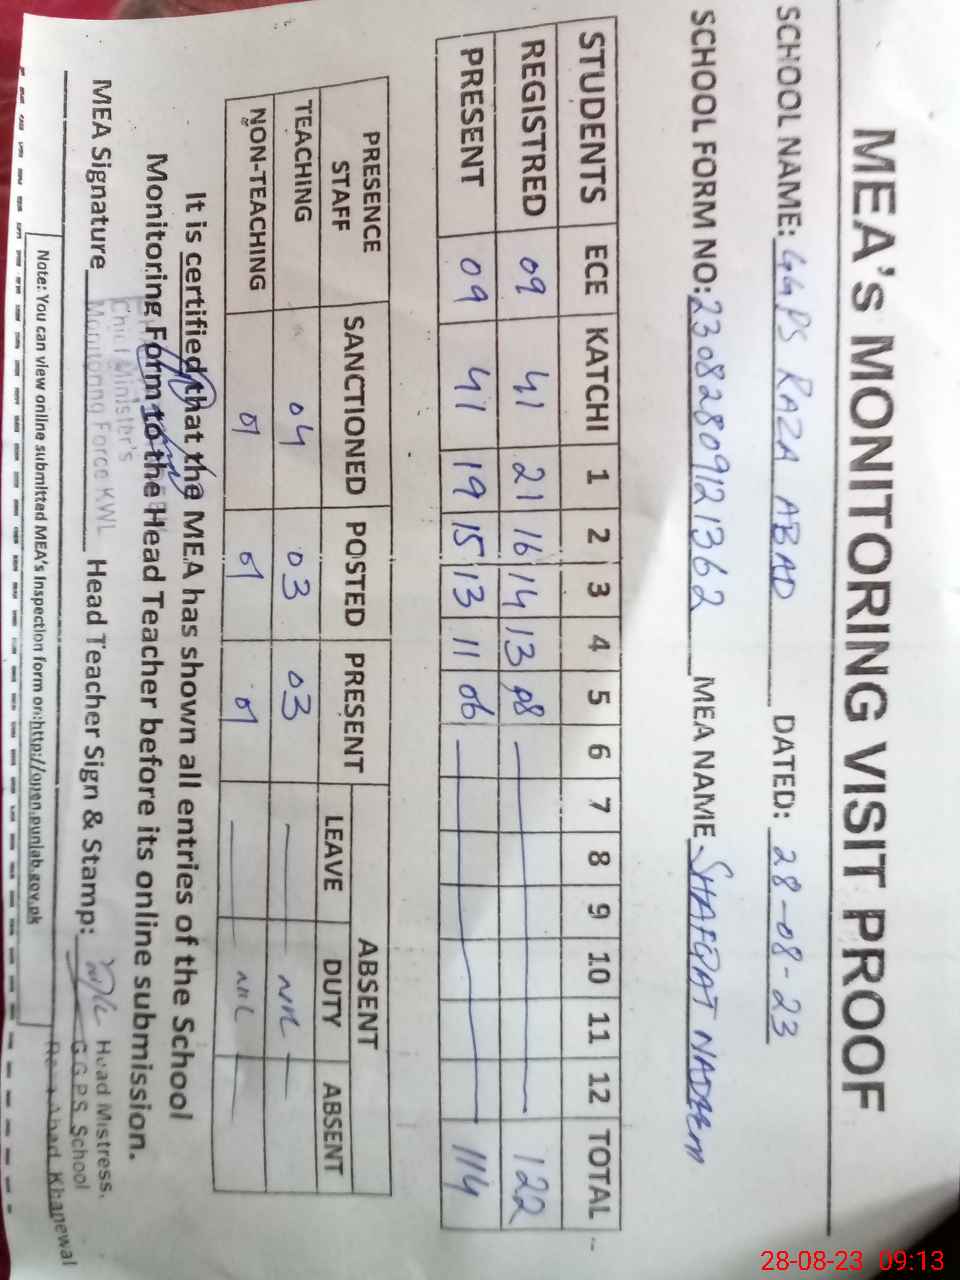 MEA's MONITORING VISIT PROOF
SCHOOL NAME: GGPS RAZA ABAD DATED: 28-08-23
SCHOOL FORM NO: 23082809121362 MEA NAME SHAFQAT NADEEM
STUDENTS ECE KATCHI 1 2 3 4 5 6 7 8 9 10 11 12 TOTAL
REGISTRED 09 41 21 16 14 13 08 122
PRESENT 09 41 19 15 13 11 06 114
PRESENCE STAFF SANCTIONED POSTED PRESENT ABSENT
LEAVE DUTY ABSENT
TEACHING 04 03 03 NIL
NON-TEACHING 01 01 01 NIL
It is certified that the MEA has shown all entries of the School
Monitoring Form to the Head Teacher before its online submission.
Chief Minister's
Monitoring Force KWL
MEA Signature Head Teacher Sign & Stamp:
Head Mistress.
G.G.P.S. School
Abad Khanewal
Note: You can view online submitted MEA's Inspection form on:http://open.punjab.gov.pk
28-08-23 09:13